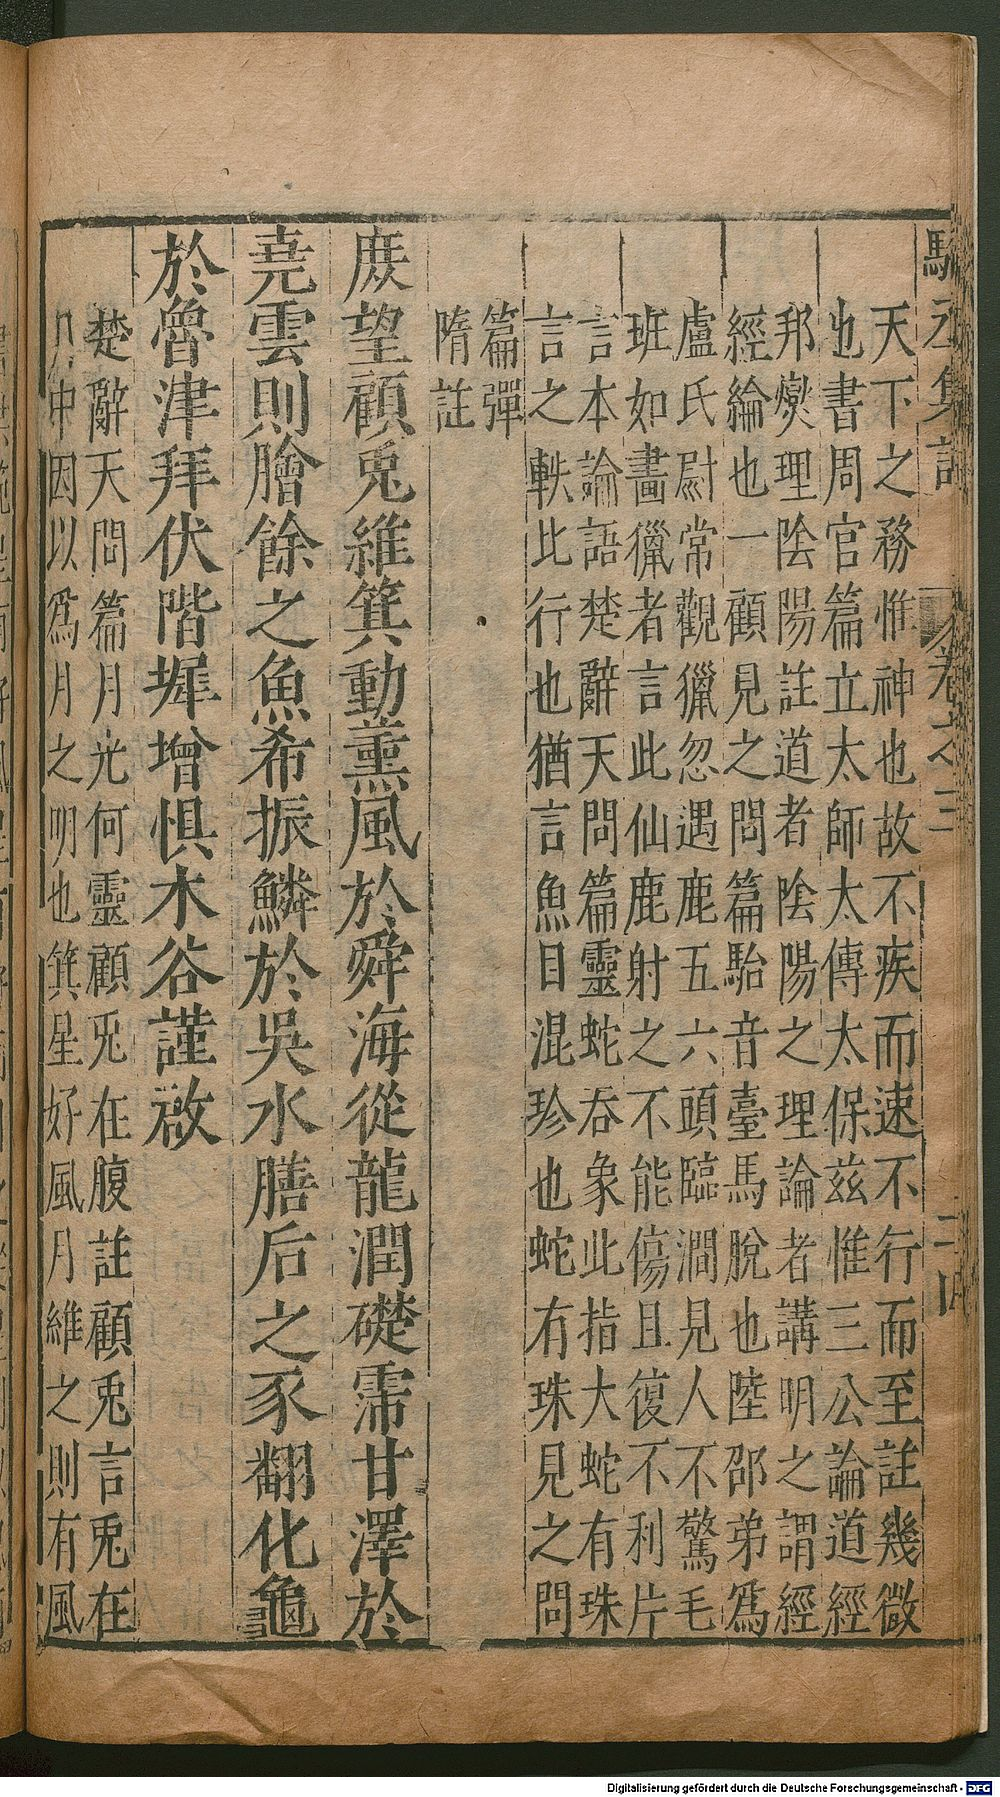 丞集註 卷之三
天下之務惟神也故不疾而速不行而至註幾微
也書周官篇立太師太傅太保玆惟三公論道經
邦爕理陰陽註道者陰陽之理論者講明之謂經
經綸也一顧見之問篇駘音臺馬脫也陸邵弟爲
盧氏尉常觀獵忽遇鹿五六頭臨澗見人不驚毛
班如畵獵者言此仙鹿射之不能傷且復不利片
言本論語楚辭天問篇靈蛇吞象此指大蛇有珠
言之軼比行也猶言魚目混珍也蛇有珠見之問
篇彈
隋註
庻望顧兎維箕動薰風於舜海從龍潤礎霈甘澤於
堯雲則膾餘之魚希振鱗於吳水膳后之豕翻化龜
於魯津拜伏階墀增惧木谷謹啟
楚辭天問篇月光何靈顧兎在腹註顧兎言兎在
月中因以爲月之明也箕星好風月維之則有風
Digitalisierung gefördert durch die Deutsche Forschungsgemeinschaft - DFG